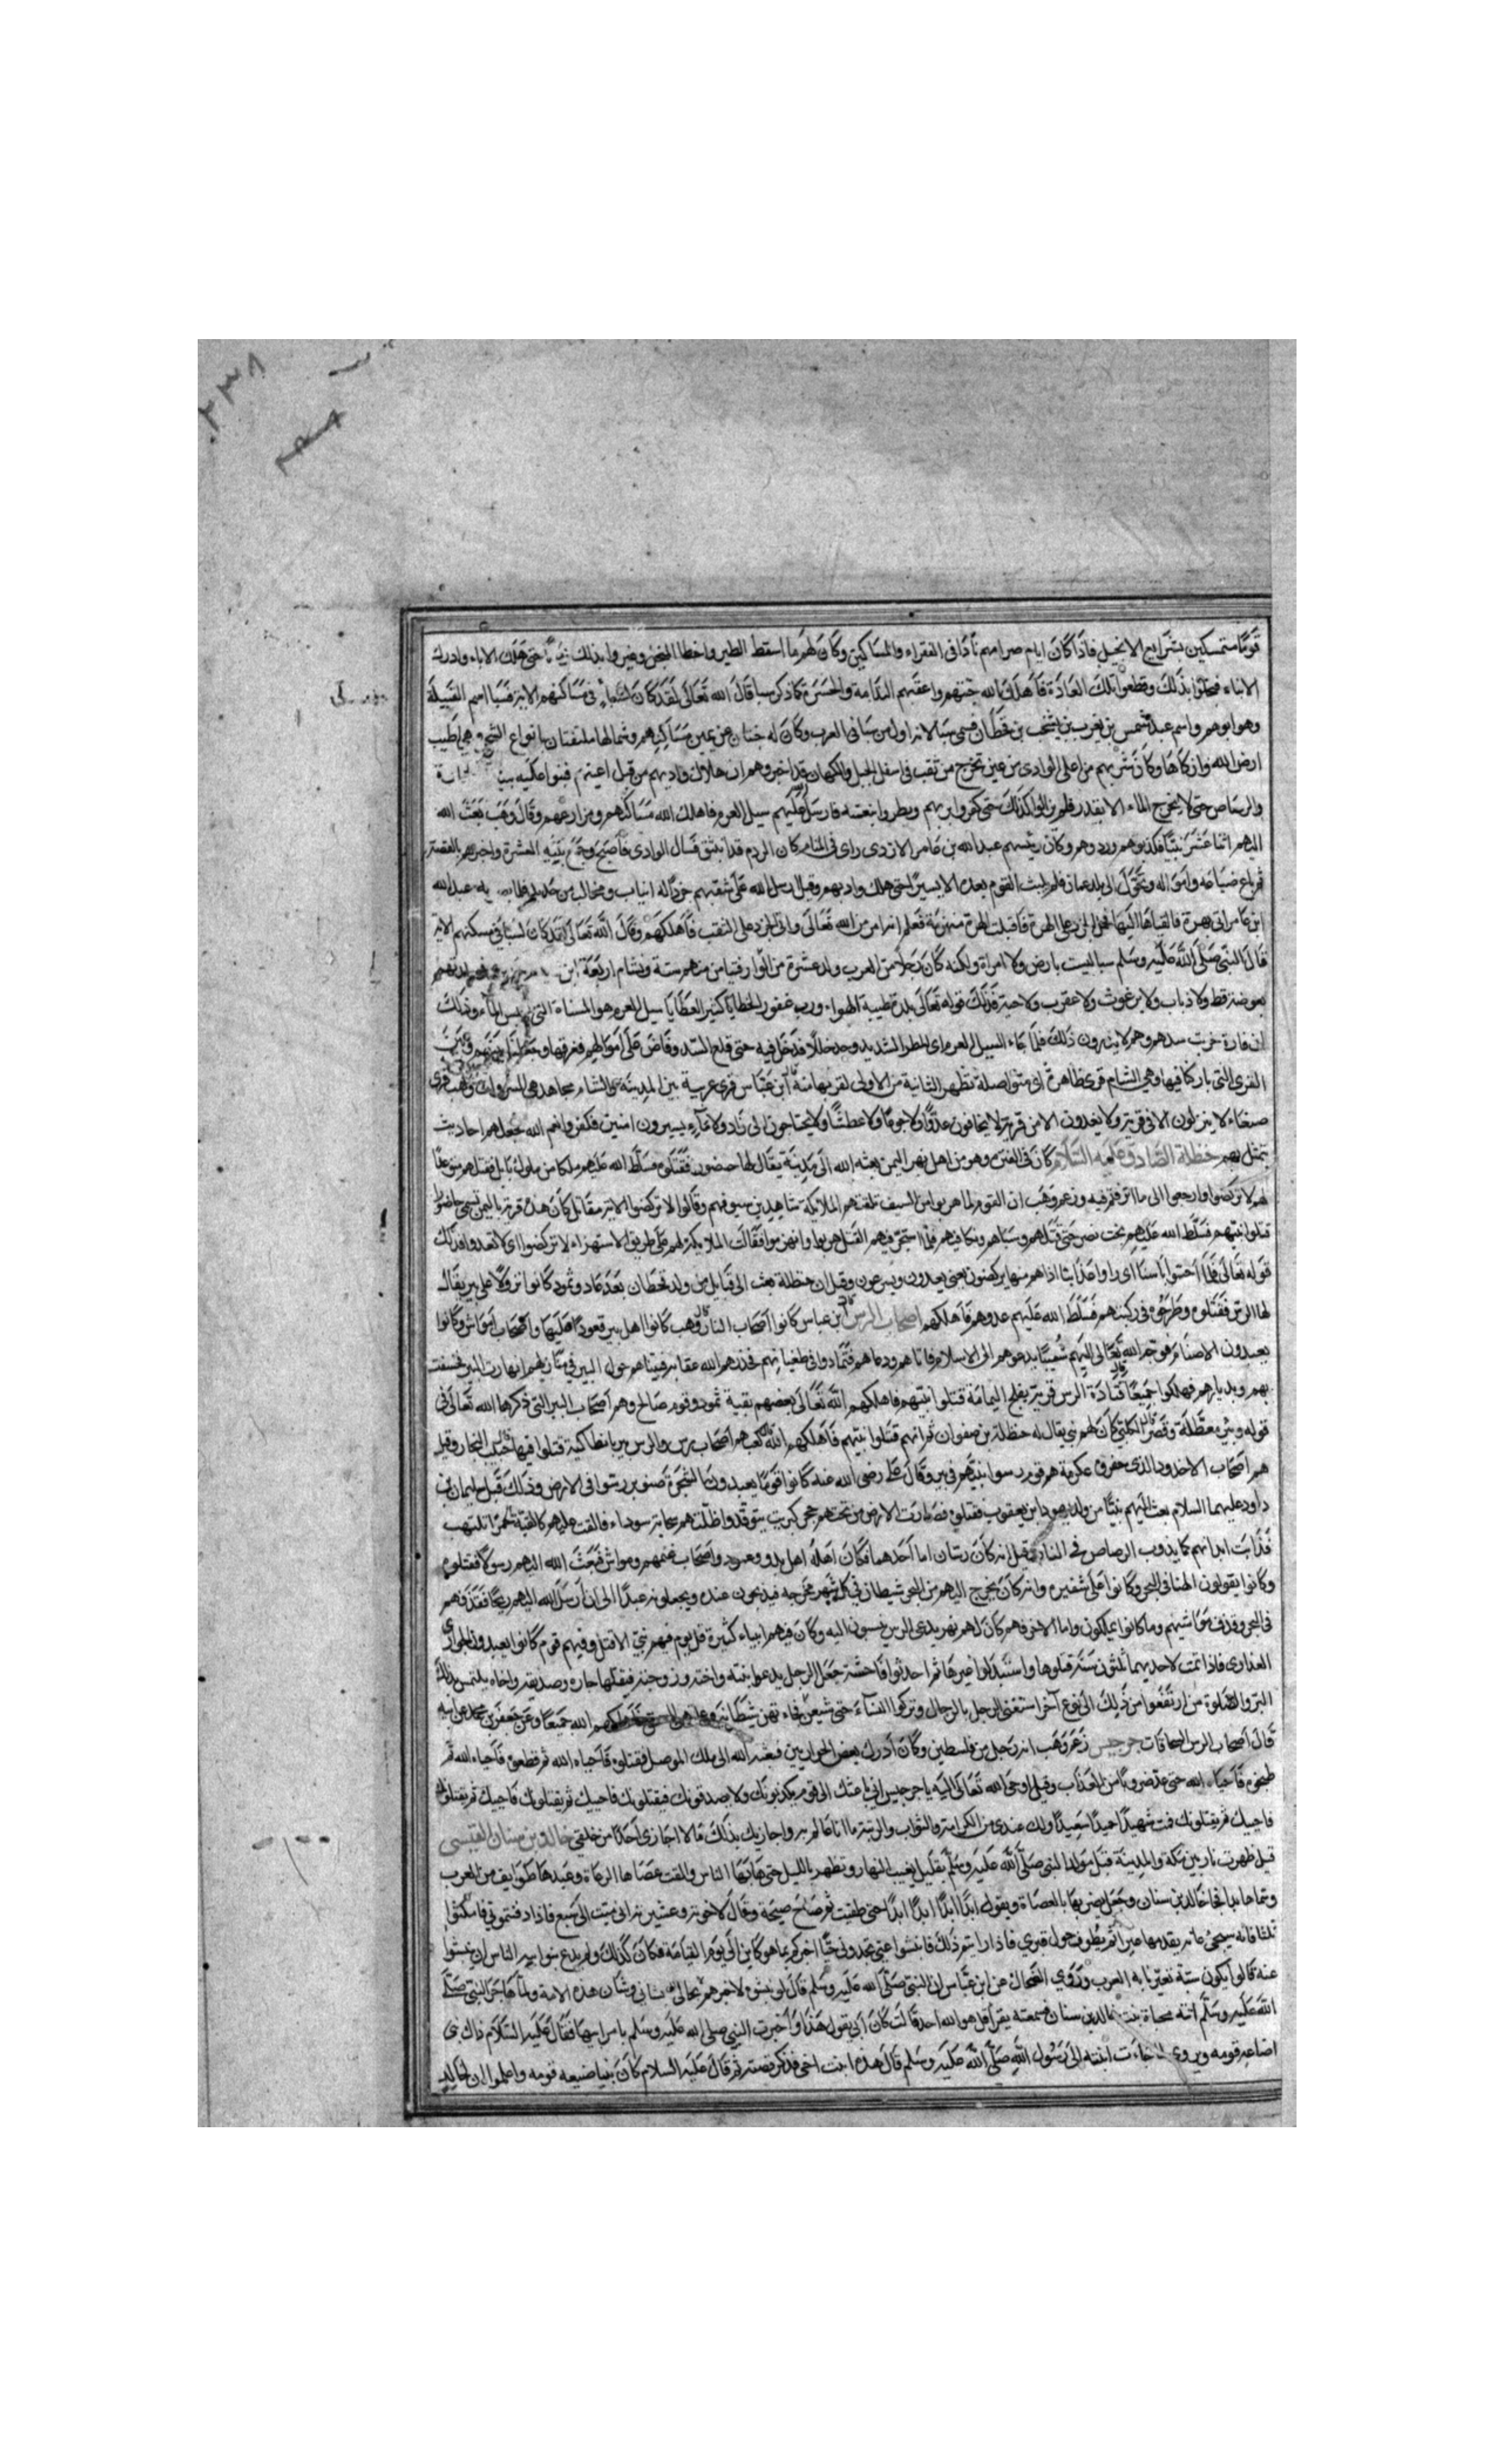 ٢٣٨
قومًا متمسكين بشرايع الانجيل فاذا كان ايام صرامهم نادا فى الفقراء والمساكين وكان لهم ما اسقط الطير واخطا المنجل وغيروا بذلك حتى هلك الاباء وادرك
الابناء فبخلوا بذلك وقطعوا تلك العادة فاهلك الله جنتهم واعقبهم الندامة والحسرة كما ذكر سبا قال الله تعالى لقد كان لسباء فى مساكنهم الاية فسبا اسم القبيلة
وهو ابوهم واسمه عبد شمس بن يعرب بن يشجب بن قحطان فسمى سبا لانه اول من سبا فى العرب وكان له جنتان عن يمين مساكنهم وشمالها ملتفتان بانواع الشجر وهى اطيب
ارض الله وازكاها وكان شربهم من اعلى الوادى من عين تخرج من ثقب فى اسفل الجبل والكهان قد اخبروهم ان هلاك واديهم من قبل اعينهم فبنوا عليه
والرصاص حتى لا يخرج الماء الا بقدر فلم يزالوا كذلك حتى كفروا بربهم وبطروا بنعمته فارسل عليهم سيل العرم فاهلك الله مساكنهم ومزارعهم وقال وهب بعث الله
اليهم اثنا عشر نبيًا فكذبوهم وردوهم وكان رئيسهم عبد الله بن عامر الازدى راى فى المنام كان الردم قد انبثق فسال الوادى فاصبح وجمع بنيه العشرة واخبرهم بالقصة
ثم باع ضياعه وامواله وتحول الى بلد عمان فلم يلبث القوم بعده الا يسيرًا حتى هلك واديهم وقيل ارسل الله على شقبهم جرذًا له انياب ومخاليب من حديد عبد الله
ابن عامر اتى بهرة فالقاها اليها الجرذ على الهرة فاقبلت الهرة منهزمة فعلم انه امر من الله تعالى واتى الجرذ على النقب فاهلكهم وقال الله تعالى لقد كان لسبا فى مسكنهم الاية
قال النبى صلى الله عليه وسلم سبا ليست بارض ولا امراة ولكنه كان رجلًا من العرب ولد عشرة من الوا فتيامن منهم ستة وتشام اربعة ابن
بعوضة قط ولا ذباب ولا برغوث ولا عقرب ولا حية فذلك قوله تعالى بلدة طيبة الهواء ورب غفور الخطايا كثير العطايا سيل العرم هو المسناة التى الماء وذلك
ان فارة خربت سدهم وهم لا يرون ذلك فلما جاء السيل العرم اى المطر الشديد وجد خللًا فدخل فيه حتى قلع السد وفاض على اموالهم فغرقها
القرى التى باركنا فيها وهى الشام قرى ظاهرة اى متواصلة تظهر الثانية من الاولى لقربها منه ابن عباس قرى عربية بين المدينة والشام مجاهد هى السروات وهب قرى
صنعاء لا ينزلون الا فى قرية ولا يغدون الا من قرية لا يخافون عدوًا ولا جوعًا ولا عطشًا ولا يحتاجون الى زاد ولا ماء يسيرون امنين فكفروا نعم الله فجعلهم احاديث
يتمثل بهم حنظلة الصادق عليه السلام كان فى الفترة وهو من اهل بهر اليمن بعثه الله الى مدينة يقال لها حضور فقتلوه فسلط الله عليهم ملكا من ملوك بابل فقتلهم
لهم لا تركضوا وارجعوا الى ما اترفتم فيه وزعم وهب ان القوم لما هربوا من السيف تلقتهم الملائكة شاهدين سيوفهم وقالوا لا تركضوا الاية مقاتل كان هذه قرية باليمن تسمى حاضورا
قتلوا نبيهم فسلط الله عليهم بخت نصر حتى قتلهم وسباهم ونكا فيهم فلما استحر فيهم القتل هربوا وانهزموا فقالت الملايكة لهم على طريق الاستهزاء لا تركضوا اى لا تعدوا فذلك
قوله تعالى فلما احسوا باسنا اى راوا عذابنا اذا هم منها يركضون يعنى يعدون ويسرعون وقيل ان حنظلة بعث الى قبايل من ولد قحطان بعد عاد وثمود كانوا نزولًا على بير يقال
لها الرس فقتلوه وطرحوه فى ركيتهم فسلط الله عليهم عدوهم فاهلكهم اصحاب الرس ابن عباس كانوا اصحاب النار وهب كانوا اهل بير قعودًا عليها واصحاب مواش وكانوا
يعبدون الاصنام فوجه الله تعالى اليهم شعيبًا يدعوهم الى الاسلام فاتاهم ودعاهم فتمادوا فى طغيانهم فحذرهم الله عقابه فبينا هم حول البير فى منازلهم انهارت البير فخسفت
بهم وبديارهم فهلكوا جميعًا قتادة الرس قرية بفلج اليمامة قتلوا نبيهم فاهلكهم الله تعالى بعضهم بقية ثمود وقوم صالح وهم اصحاب البير التى ذكرها الله تعالى فى
قوله وبئر معطلة وقصر الكلبى كان لهم نبى يقال له حنظلة بن صفوان ثم انهم قتلوا نبيهم فاهلكهم الله كعب هم اصحاب رس والرس بير بانطاكية قتلوا فيها حبيب النجار وقيل
هم اصحاب الاخدود الذى حفروه عكرمة هم قوم رسوا نبيهم فى بير وقال على رضى الله عنه كانوا قومًا يعبدون الشجرة صنوبر رسوا فى الارض وذلك قبل سليمان بن
داود عليهما السلام بعث اليهم نبيًا من ولد يهودا بن يعقوب فقتلوه فصارت الارض من تحتهم حجر كبريت يتوقد واظلتهم سحابة سوداء فالقت عليهم كالقبة جمرًا تلتهب
فذابت ابدانهم كما يذوب الرصاص فى النار وقيل انه كان رسان اما احدهما فكان اهله اهل بدو وعمود واصحاب غنم ومواش فبعث الله اليهم رسولًا فقتلوه
وكانوا يقولون الهنا فى البحر وكانوا على شفيره وانه كان يخرج اليهم من البحر شيطان فى كل شهر خرجه فيذبحون عنده ويجعلونه عيدًا الى ان ارسل الله اليهم ريحًا فقذفهم
فى البحر وقذف مواشيهم وما كانوا يملكون واما الاخر فهم كان لهم نهر يدعى الرس ينسبون اليه وكان فيهم انبياء كثيرة قل يوم فيهم نبى الا قتل وفيهم قوم كانوا يعبدون الجوارى
العذارى فاذا تمت لاحديهما ثلثون سنة قتلوها واستبدلوا غيرها ثم احدثوا فاحشة جعل الرجل يدعو ابنته واخته وزوجته فينقلها جاره وصديقه واخاه يلتمس بذلك
البر والصلوة من ارتفعوا من ذلك الى نوع اخر استغنى الرجل بالرجال وتركوا النساء حتى شبقن فجاءتهن شيطانة الله جميعًا وعن جعفر بن محمد عن ابيه
قال اصحاب الرس السحاقات جرجيس زعم وهب انه رجل من فلسطين وكان ادرك بعض الحواريين فبعثه الله الى ملك الموصل فقتلوه فاحياه الله ثم قطعوه فاحياه الله ثم
طبخوه فاحياه الله حتى عد ضروبًا من العذاب وقيل اوحى الله تعالى اليه يا جرجيس انى باعثك الى قوم يكذبونك ولا يصدقونك فيقتلونك فاحييك ثم يقتلونك فاحييك ثم يقتلونك
فاحييك ثم يقتلونك فمت شهيدًا حميدًا سعيدًا ولك عندى من الكرامة والثواب والرتبة ما انا عالم به واجازيك بذلك ما لا اجازى احدًا من خلقى خالد بن سنان العبسى
قيل ظهرت نار بين مكة والمدينة قبل مولد النبى صلى الله عليه وسلم بقليل يغيب النهار وتظهر بالليل حتى هابها الناس والقت عصاها الرعاة وعبدها طوايف من العرب
وتماحا بها فجا خالد بن سنان وجعل يضربها بالعصاة ويقول ابدًا ابدًا ابدًا ابدًا حتى طفيت ثم صاح صيحة وقال لاخوته وعشيرته انى ميت الى سبع فاذا دفنتمونى فامكثوا
ثلثا فانه سيجئ عانة يقدمها عير اقمر يطوف حول قبرى فاذا رايتم ذلك فانبشوا عنى تجدونى حيًا اخبركم بما هو كاين الى يوم القيامة فكان كذلك ولم يدع بنو ابيه الناس ان ينبشوا
عنه قالوا يكون سبة تعيرنا به العرب وروى الضحاك عن ابن عباس ان النبى صلى الله عليه وسلم قال لو نبشوه لاخبرهم بحالى وشانى وشان هذه الامة ولما هاجر النبى صلى
الله عليه وسلم اتته محياة بنت خالد بن سنان فسمعته يقرا قل هو الله احد قالت كان ابى يقول هذا واخبرت النبى صلى الله عليه وسلم بامر ابيها فقال عليه السلام ذاك نبى
اضاعه قومه ويروى لما جاءت ابنته الى رسول الله صلى الله عليه وسلم قال هذه ابنت اخى فذكر قصته ثم قال عليه السلام كان نبيا ضيعه قومه واعلموا ان خالد